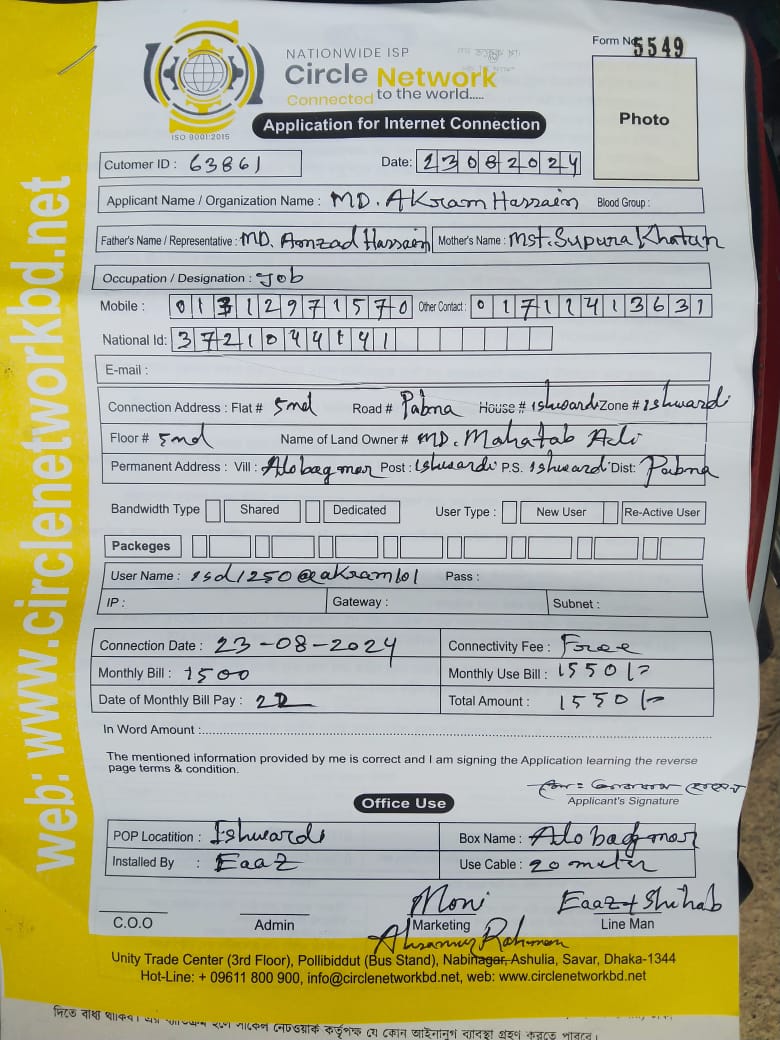 NATIONWIDE ISP
Circle Network
Connected to the world.....
ISO 9001:2015
Form No 5549
Photo
Application for Internet Connection
Cutomer ID : 63861
Date: 23082024
Applicant Name / Organization Name : MD. AKram Hassain Blood Group :
Father's Name / Representative : MD. Amzad Hassain Mother's Name : Mst. Supura Khatun
Occupation / Designation : Job
Mobile : 01312971570 Other Contact : 01712413631
National Id: 37210441
E-mail :
Connection Address : Flat # 5nd Road # Pabna House # ishwardi Zone # ishwardi
Floor # 5nd Name of Land Owner # MD. Mahatab Ali
Permanent Address : Vill : Alobagmor Post : Ishwardi P.S. Ishwardi Dist: Pabna
Bandwidth Type Shared Dedicated User Type : New User Re-Active User
Packeges
User Name : isd1250@akram101 Pass :
IP : Gateway : Subnet :
Connection Date : 23-08-2024 Connectivity Fee : Free
Monthly Bill : 1500 Monthly Use Bill : 1550/-
Date of Monthly Bill Pay : 22 Total Amount : 1550/-
In Word Amount :
The mentioned information provided by me is correct and I am signing the Application learning the reverse
page terms & condition.
Applicant's Signature
Office Use
POP Locatition : Ishwardi Box Name : Alobagmor
Installed By : Eaaz Use Cable : 20 meter
Moni Eaaz + Shihab
C.O.O Admin Marketing Line Man
Ahsanur Rahman
Unity Trade Center (3rd Floor), Pollibiddut (Bus Stand), Nabinagar, Ashulia, Savar, Dhaka-1344
Hot-Line: + 09611 800 900, info@circlenetworkbd.net, web: www.circlenetworkbd.net
web: www.circlenetworkbd.net
দিতে বাধ্য থাকিব। নেটওয়ার্ক কর্তৃপক্ষ যে কোন আইনানুগ ব্যবস্থা গ্রহণ করতে পারবে।